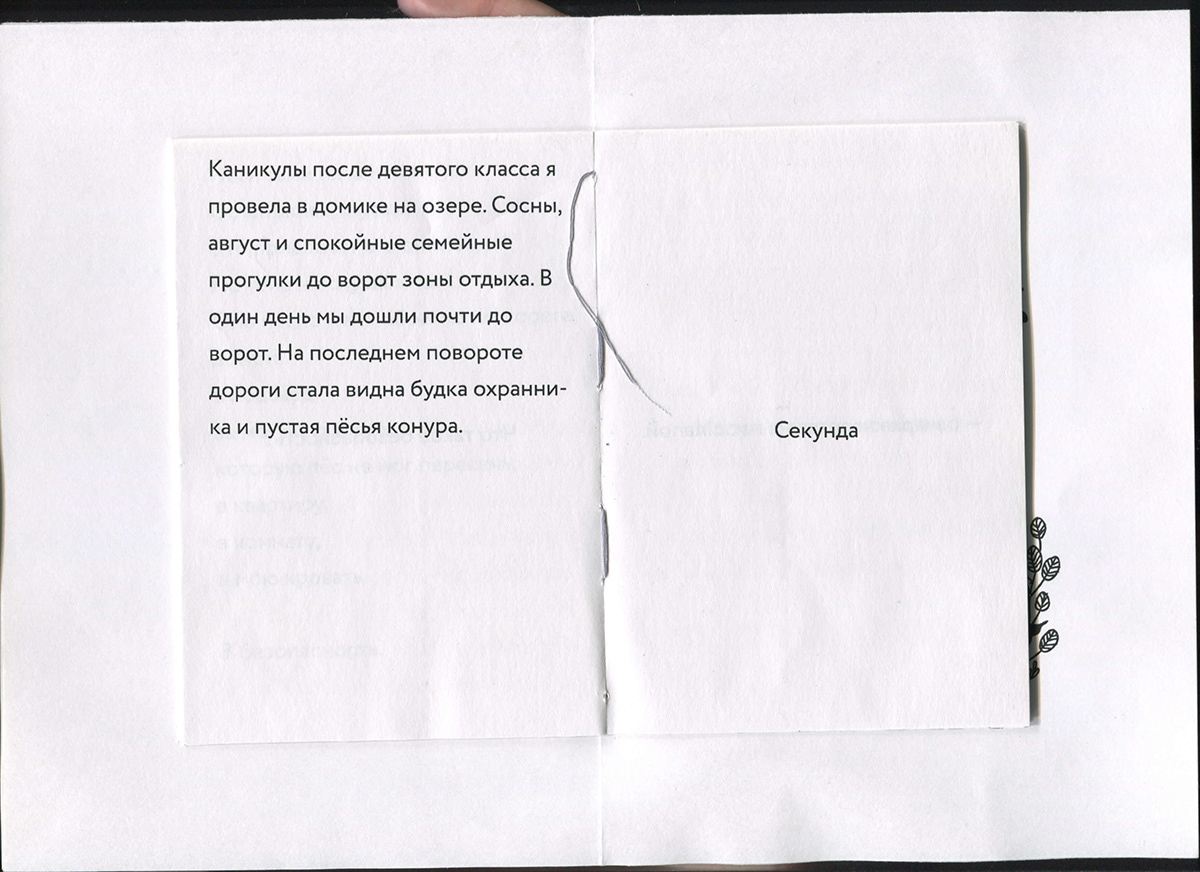 Каникулы после девятого класса я
провела в домике на озере. Сосны,
август и спокойные семейные
прогулки до ворот зоны отдыха. В
один день мы дошли почти до
ворот. На последнем повороте
дороги стала видна будка охранни-
ка и пустая пёсья конура.
Секунда